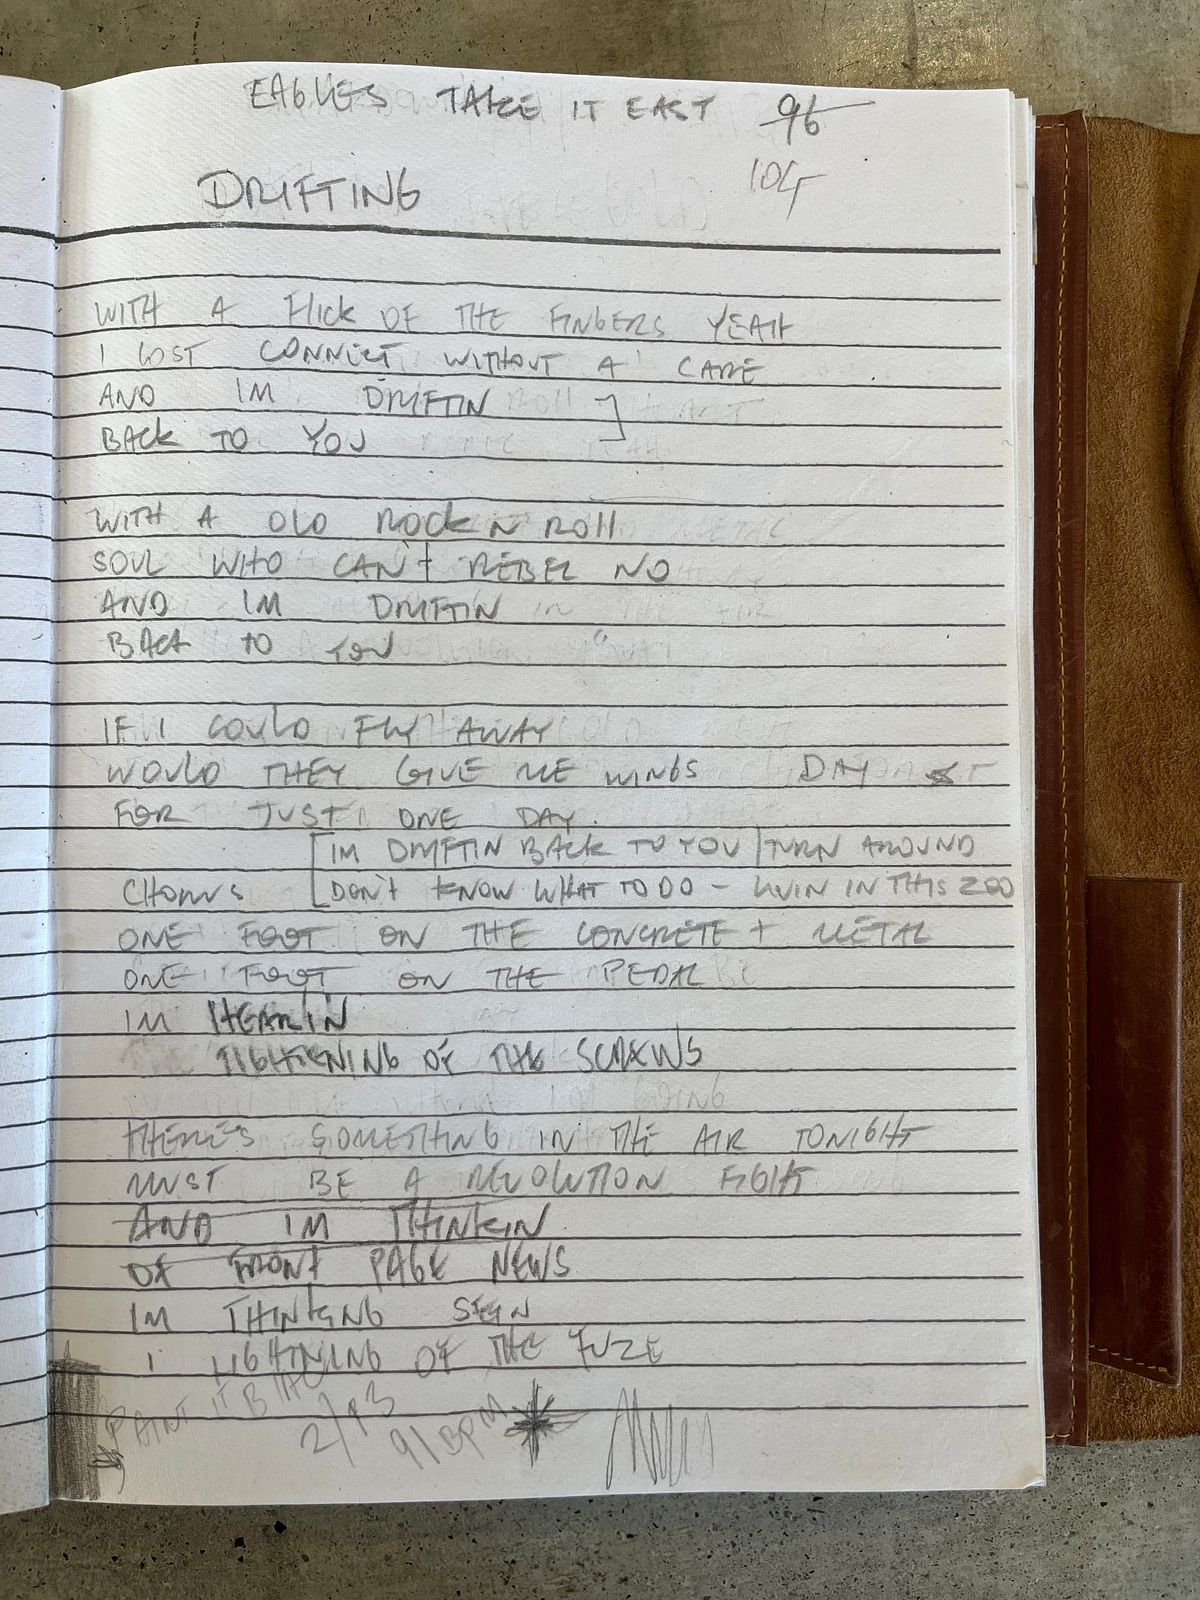 EAGLES TAKE IT EASY 96
DRIFTING 104
WITH A FLICK OF THE FINGERS YEAH
I LOST CONNECT WITHOUT A CARE
AND IM DRIFTIN
BACK TO YOU
WITH A OLD ROCK N ROLL
SOUL WHO CAN'T REBEL NO
AND IM DRIFTIN
BACK TO YOU
IF I COULD FLY AWAY
WOULD THEY GIVE ME WINGS DAY
FOR JUST ONE DAY
IM DRIFTIN BACK TO YOU TURN AROUND
CHORUS DON'T KNOW WHAT TO DO - LIVIN IN THIS ZOO
ONE FOOT ON THE CONCRETE + METAL
ONE FOOT ON THE PEDAL
IM HEARIN
TIGHTENING OF THE SCREWS
THERE'S SOMETHING IN THE AIR TONIGHT
MUST BE A REVOLUTION FIGHT
AND IM THINKIN
OF FRONT PAGE NEWS
IM THINKING
LIGHTNING OF THE FUZE
PAINT IT BLACK
91 BPM